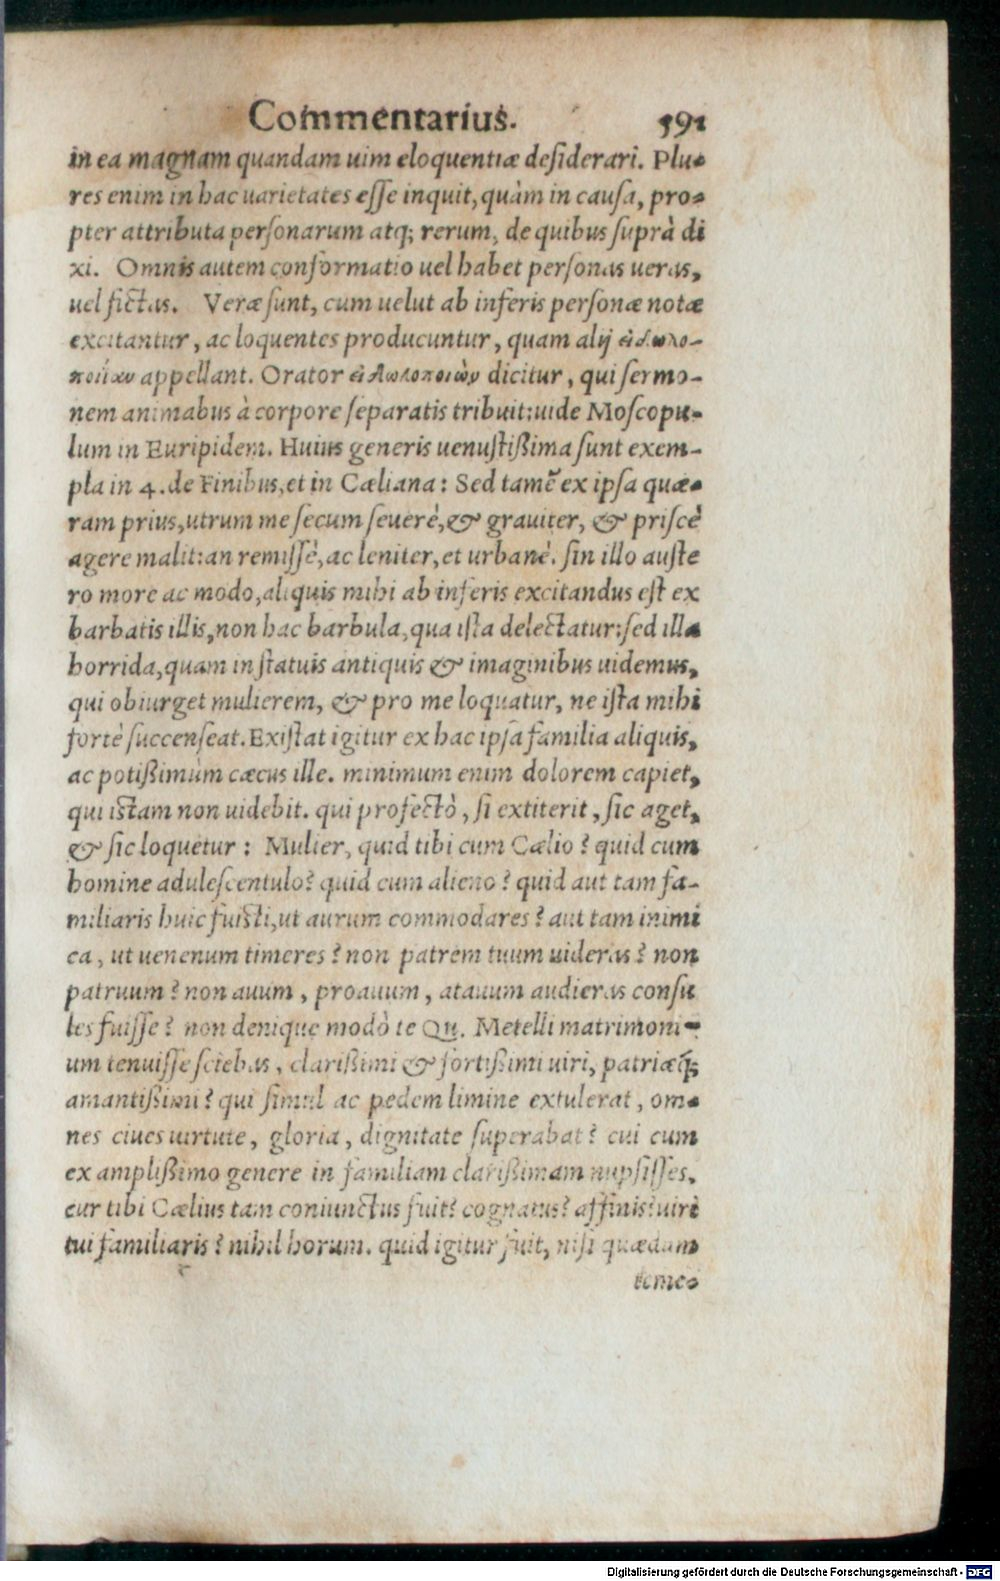 Commentarius. 591
in ea magnam quandam uim eloquentiæ desiderari. Plu-
res enim in hac uarietates esse inquit, quàm in causa, pro-
pter attributa personarum atq; rerum, de quibus suprà di
xi. Omnis autem conformatio uel habet personas ueras,
uel fictas. Veræ sunt, cum uelut ab inferis personæ notæ
excitantur, ac loquentes producuntur, quam alij εἰδωλο-
ποιΐαν appellant. Orator εἰδωλοποιῶν dicitur, qui sermo-
nem animabus à corpore separatis tribuit: uide Moscopu-
lum in Euripidem. Huius generis uenustißima sunt exem-
pla in 4. de Finibus, et in Cæliana: Sed tamē ex ipsa quæ-
ram prius, utrum me secum seuerè, & grauiter, & priscè
agere malit: an remissè, ac leniter, et urbanè. sin illo auste
ro more ac modo, aliquis mihi ab inferis excitandus est ex
barbatis illis, non hac barbula, qua ista delectatur: sed illa
horrida, quam in statuis antiquis & imaginibus uidemus,
qui obiurget mulierem, & pro me loquatur, ne ista mihi
fortè succenseat. Existat igitur ex hac ipsa familia aliquis,
ac potißimùm cæcus ille. minimum enim dolorem capiet,
qui istam non uidebit. qui profectò, si extiterit, sic aget,
& sic loquetur: Mulier, quid tibi cum Cælio? quid cum
homine adulescentulo? quid cum alieno? quid aut tam fa-
miliaris huic fuisti, ut aurum commodares? aut tam inimi
ca, ut uenenum timeres? non patrem tuum uideras? non
patruum? non auum, proauum, atauum audieras consu
les fuisse? non denique modò te Qu. Metelli matrimoni-
um tenuisse sciebas, clarißimi & fortißimi uiri, patriæq́;
amantißimi? qui simul ac pedem limine extulerat, om-
nes ciues uirtute, gloria, dignitate superabat? cui cum
ex amplißimo genere in familiam clarißimam nupsisses,
cur tibi Cælius tam coniunctus fuit? cognatus? affinis? uiri
tui familiaris? nihil horum. quid igitur fuit, nisi quædam
teme-
Digitalisierung gefördert durch die Deutsche Forschungsgemeinschaft - DFG